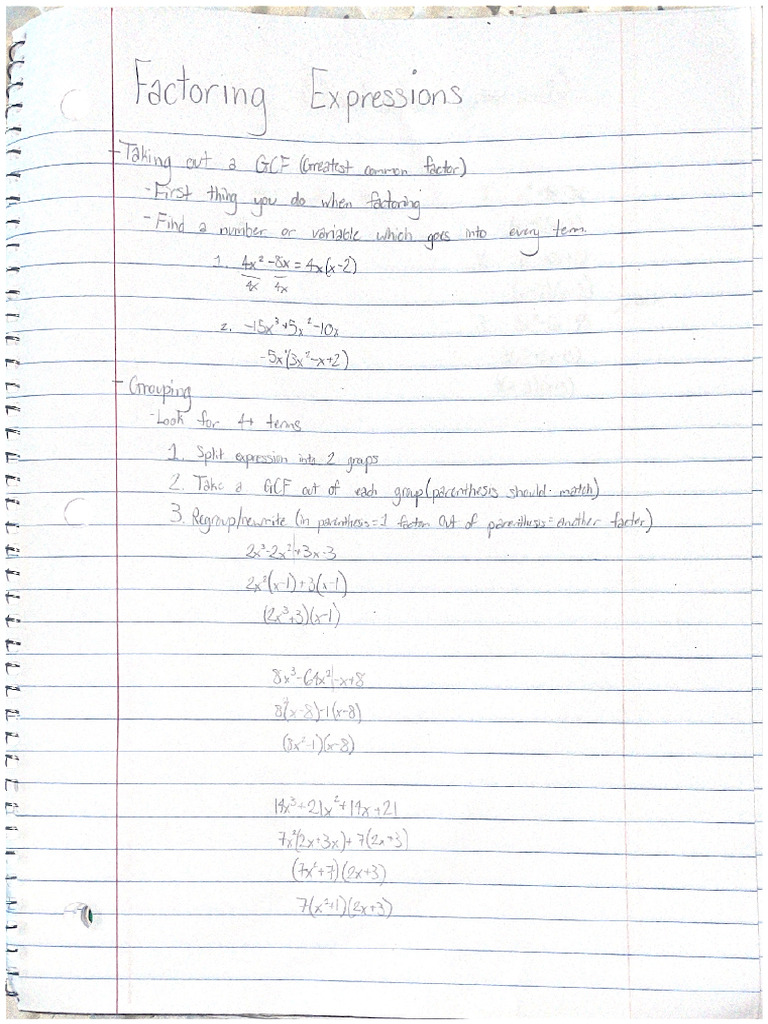 Factoring Expressions
-Taking out a GCF (Greatest common factor)
-First thing you do when factoring
-Find a number or variable which goes into every term.
1. 4x² -8x = 4x(x-2)
4x 4x
2. -15x³+5x²-10x
-5x(3x²-x+2)
- Grouping
-Look for 4+ terms
1. Split expression into 2 groups
2. Take a GCF out of each group (parenthesis should match)
3. Regroup/rewrite (in parenthesis=1 factor Out of parenthesis=another factor)
2x³-2x²|+3x-3
2x²(x-1)+3(x-1)
(2x³+3)(x-1)
8x³-64x²|-x+8
8²(x-8)-1(x-8)
(8x²-1)(x-8)
14x³+21x²+14x+21
7x²(2x+3x)+7(2x+3)
(7x²+7)(2x+3)
7(x²+1)(2x+3)